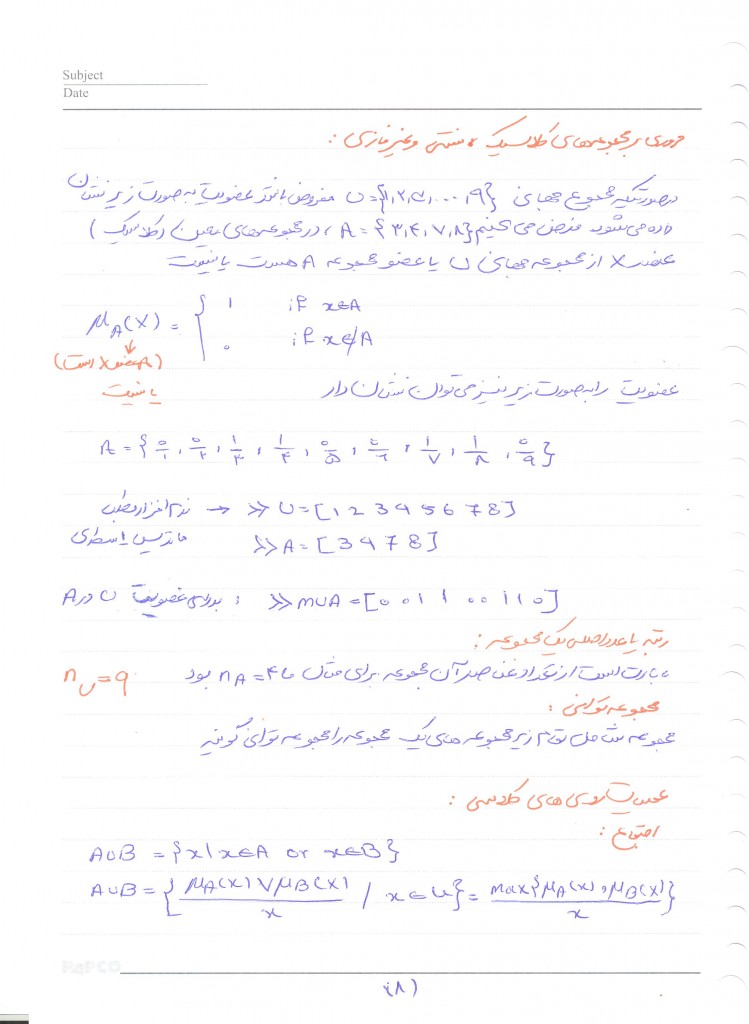 Subject
Date
مروری بر مجموعه‌های کلاسیک، سنتی و غیر فازی :
درصورتیکه مجموع جهانی U={۱,۲,۳,...,۹} مفروض باشد عضویت به صورت زیر نشان
داده می‌شود فرض می کنیم A = {۳,۴,۷,۸} ، در مجموعه‌های معین (کلاسیک)
عنصر X از مجموعه جهانی U یا عضو مجموعه A هست یا نیست
μA(X) = { ۱ if x∈A
۰ if x∉A
(A عضو X است)
یا نیست
عضویت را به صورت زیر نیز می توان نشان داد
A = {۰/۱, ۰/۲, ۱/۳, ۱/۴, ۰/۵, ۰/۶, ۱/۷, ۱/۸, ۰/۹}
نرم افزار مطلب → >> U=[1 2 3 4 5 6 7 8]
ماتریس ۱سطری >> A=[3 4 7 8]
برای عضویت U در A : >> MUA=[0 0 1 1 0 0 1 1 0]
رتبه یا عدد اصلی یک مجموعه :
عبارت است از تعداد عناصر آن مجموعه برای مثال ما nA=۴ بود nU=۹
مجموعه توانی :
مجموعه شامل تمام زیر مجموعه های یک مجموعه را مجموعه توانی گویند
عملیات‌های کلاسی :
اجتماع :
A∪B = {x|x∈A or x∈B}
A∪B = {μA(X) ∨ μB(X) / x / x∈U} = max{μA(X), μB(X)} / x
PAPCO
(۸)